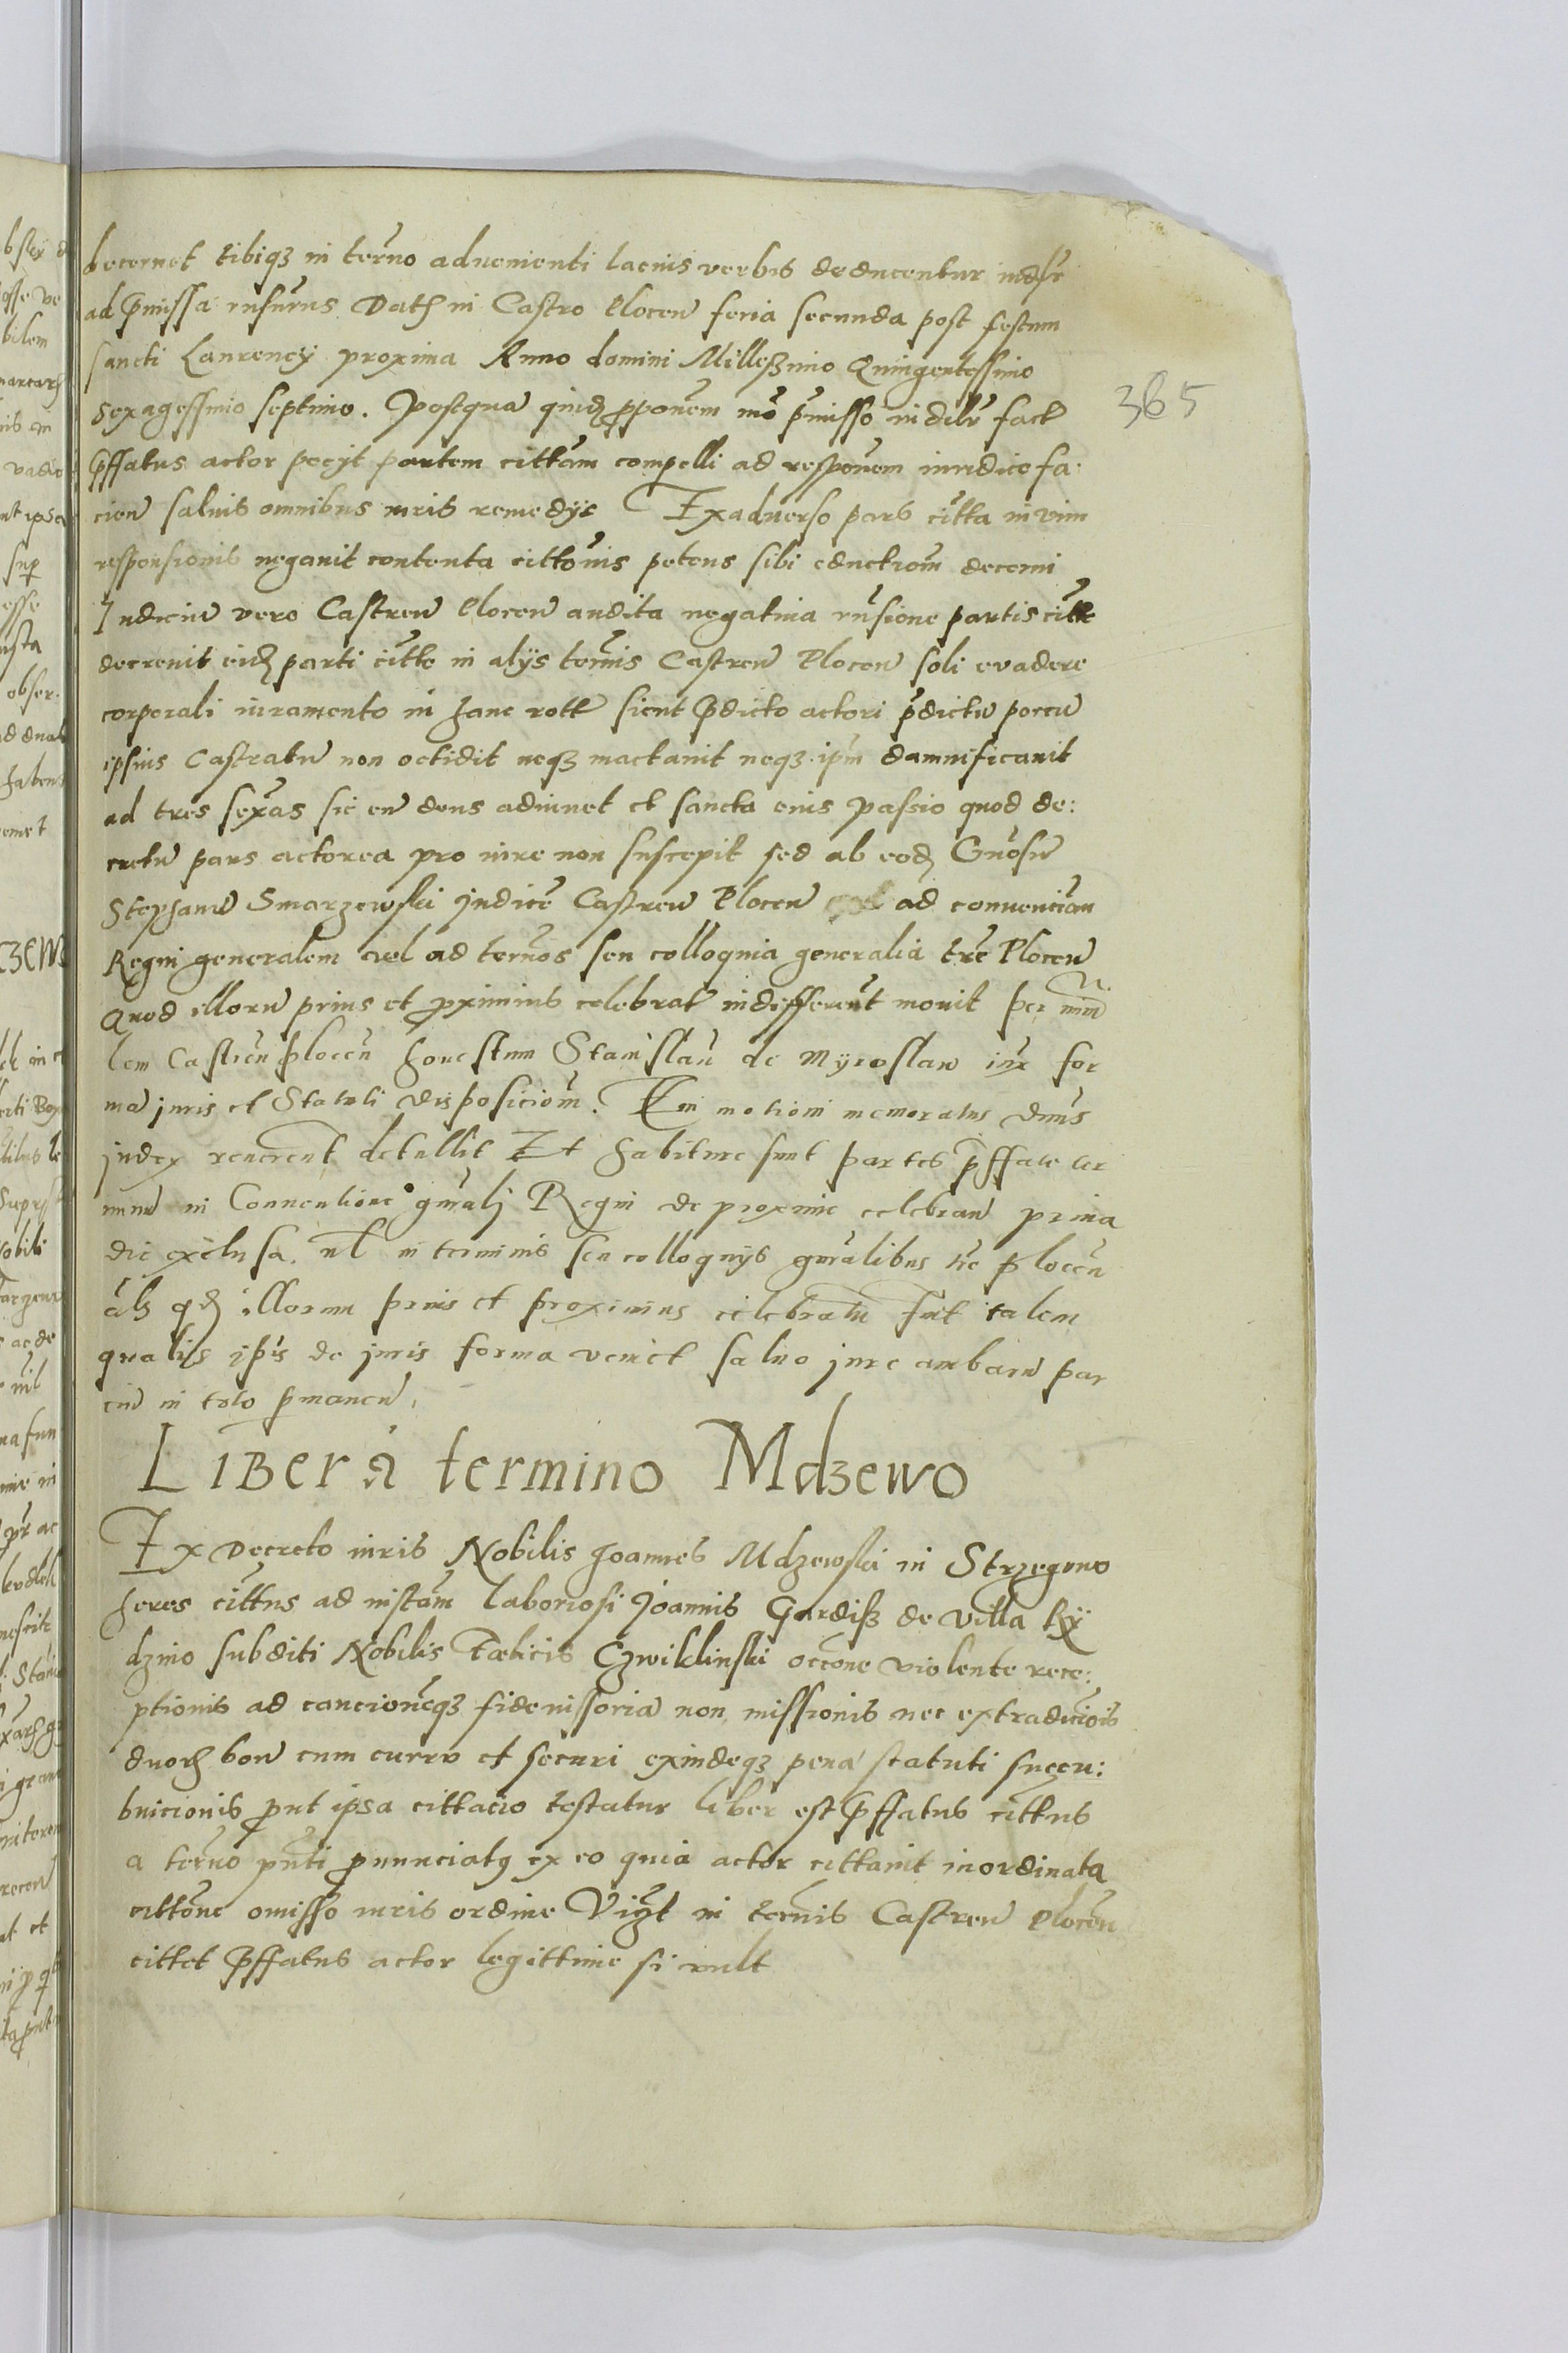 decernet tibiq3 in termo aduenienti lacius verbis deducentur iudlr
ad p̄missa rnsurus Datȝ in Castro Plocen̄ feria secunda post festum
sancti Laurencÿ proxima Anno domini Milleßimo Quingentessimo
sexagessimo septimo. Postqua quidȝ p̄ponem mō p̄misso iudilr fact
p̄ffatus actor pecÿt partem cittam compelli ad responem iuridice fa:
cien̄ saluis omnibus iuris remedÿs Ex aduerso pars citta in vim
responsionis negauit contenta cittonis petens sibi eductiom decerni
Judiciū vero Castren̄ Plocen̄ audita negatiua rnsione partis citte
decreuit eidȝ parti citte in alÿs termis Castren̄ Plocen̄ soli evadere
corporali iuramento in hanc rott sicut p̄dicto actori p̄dictū porcū
ipsius Castratū non occidit neq3 mactauit neq3 ipm damnificauit
ad tres sexas sic eū deus adiuuet et sancta eius Passio quod de:
cretū pars actorea pro iure non suscepit sed ab eodȝ Gnosū
Stephanū Smarzewski Judice Castren̄ Plocen̄ ad convenciam
Regni generalem vel ad termos seu colloquia generalia tre Plocen̄
Quod illorū prius et p̄ximius celebrat indifferent mouit per mim
lem Castren̄ plocen̄ honestum Stanislaū de Myroslaw iux for
ma juris et Statuti disposiciom. Cui motioni memoratus dnūs
judex reuerent detullit Et habiture sunt partes p̄ffate ter
minū in Conuentione gn̄ralj Regni de proxime celebran̄ prima
die exclusa. ul in terminis seu colloquÿs gn̄ralibus tre plocen̄
als qdȝ illorum prius et proximius celebratū fuit talem
qualis jpis de juris forma veniet saluo jure ambarū par
ciū in toto p̄manen̄.
LIBER à termino Mdzewo
Ex Decreto iuris Nobilis Joannes Mdzewski in Strzegowo
heres cittus ad instām laboriosi Joannis Gardiß de villa Rÿ
dzino subditi Nobilis Fœlicis Czwiklinski occone violente rece:
ptionis ad caucioneq3 fideiussoria non missionis nec extradicīois
duorȝ boū cum curru et securi exindeq3 pena statuti succu:
buicionis p̄ut ipsa cittacio testatur liber est p̄ffatus cittus
a termo pn̄ti p̄nunciatꝯ ex eo quia actor cittauit inordinata
cittone omisso iuris ordine Vigt in termis Castren̄ Plocen̄
cittet p̄ffatus actor legittime si vult
365